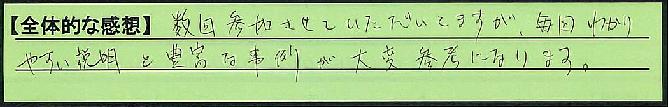 【全体的な感想】数回参加させていただいてますが、毎回わかり
やすい説明と豊富な事例が大変参考になります。